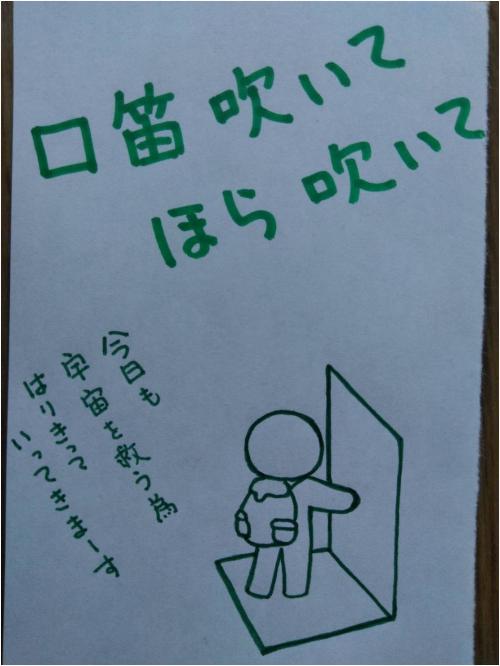 口笛吹いて
ほら吹いて
今日も
宇宙を救う為
はりきって
いってきまーす